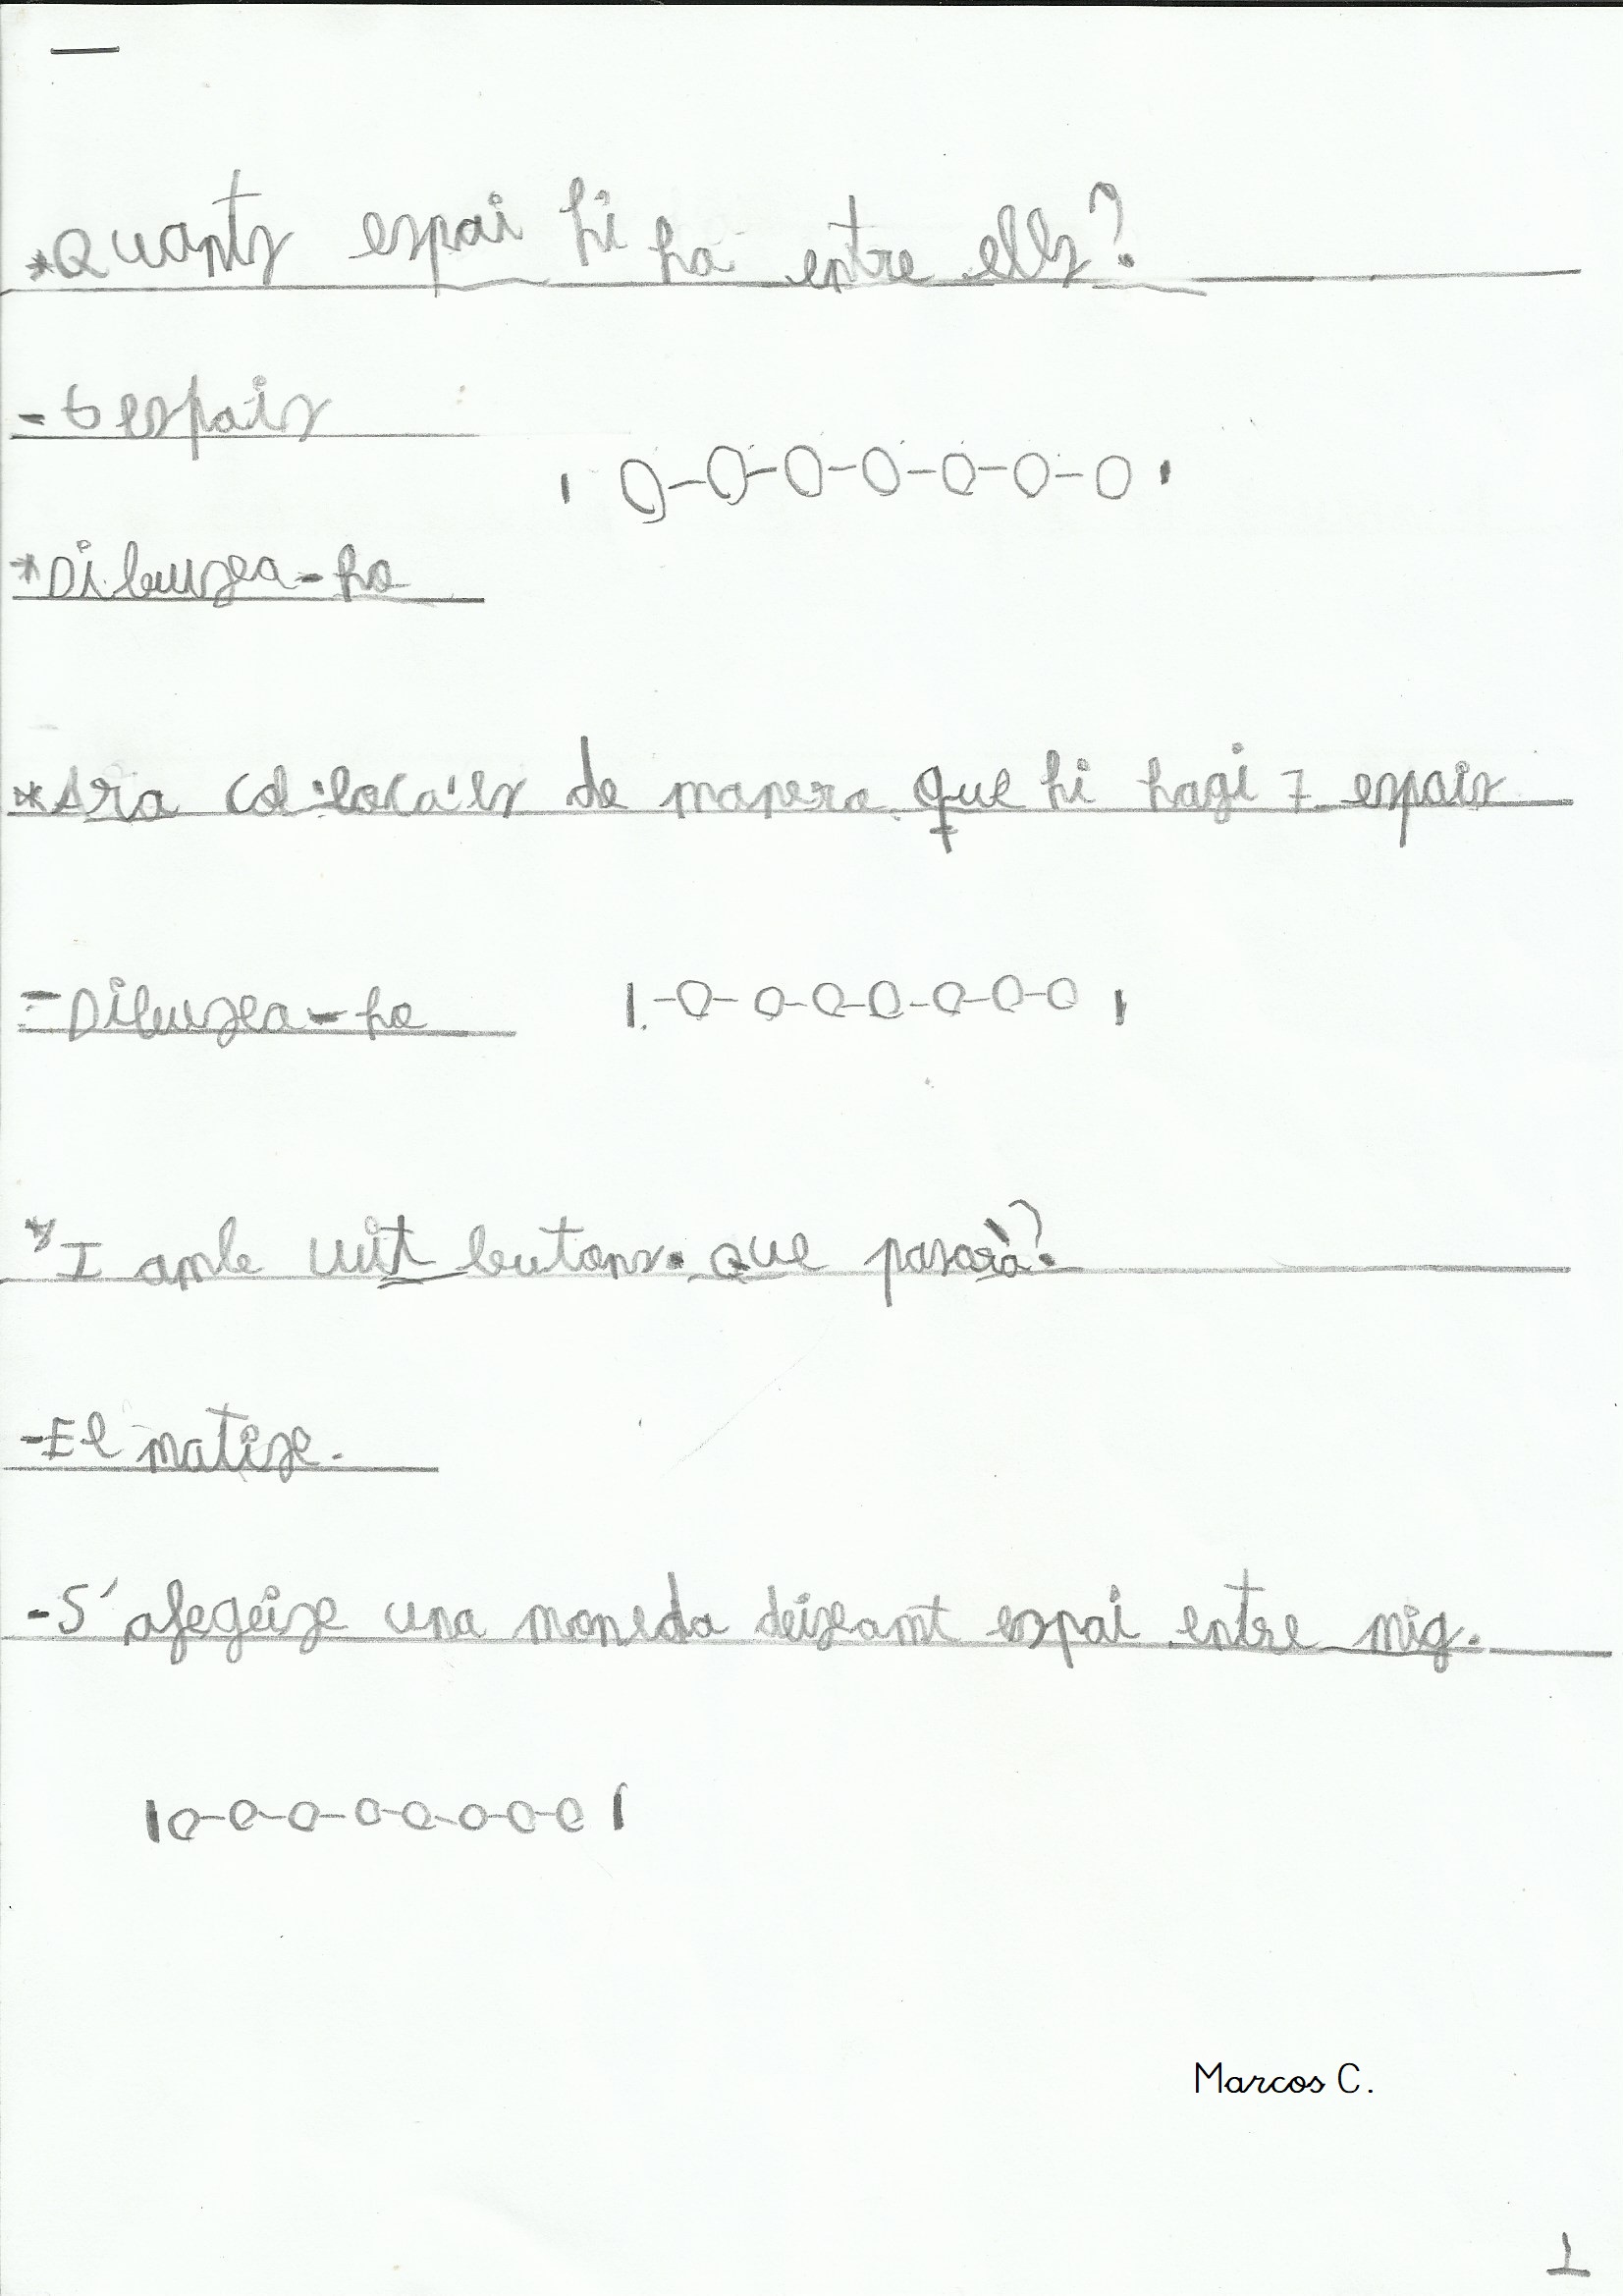 *Quants espai hi ha entre ells?
-6 espais
*Dibuxea-ho
*Ara col·loca'ls de manera que hi hagi 7 espais
-Dibuxea-ho
*I amb vuit butons. que pasarà?
-El matixe.
-S'afegeixe una moneda deixeamt espai entre mig.
Marcos C.
1